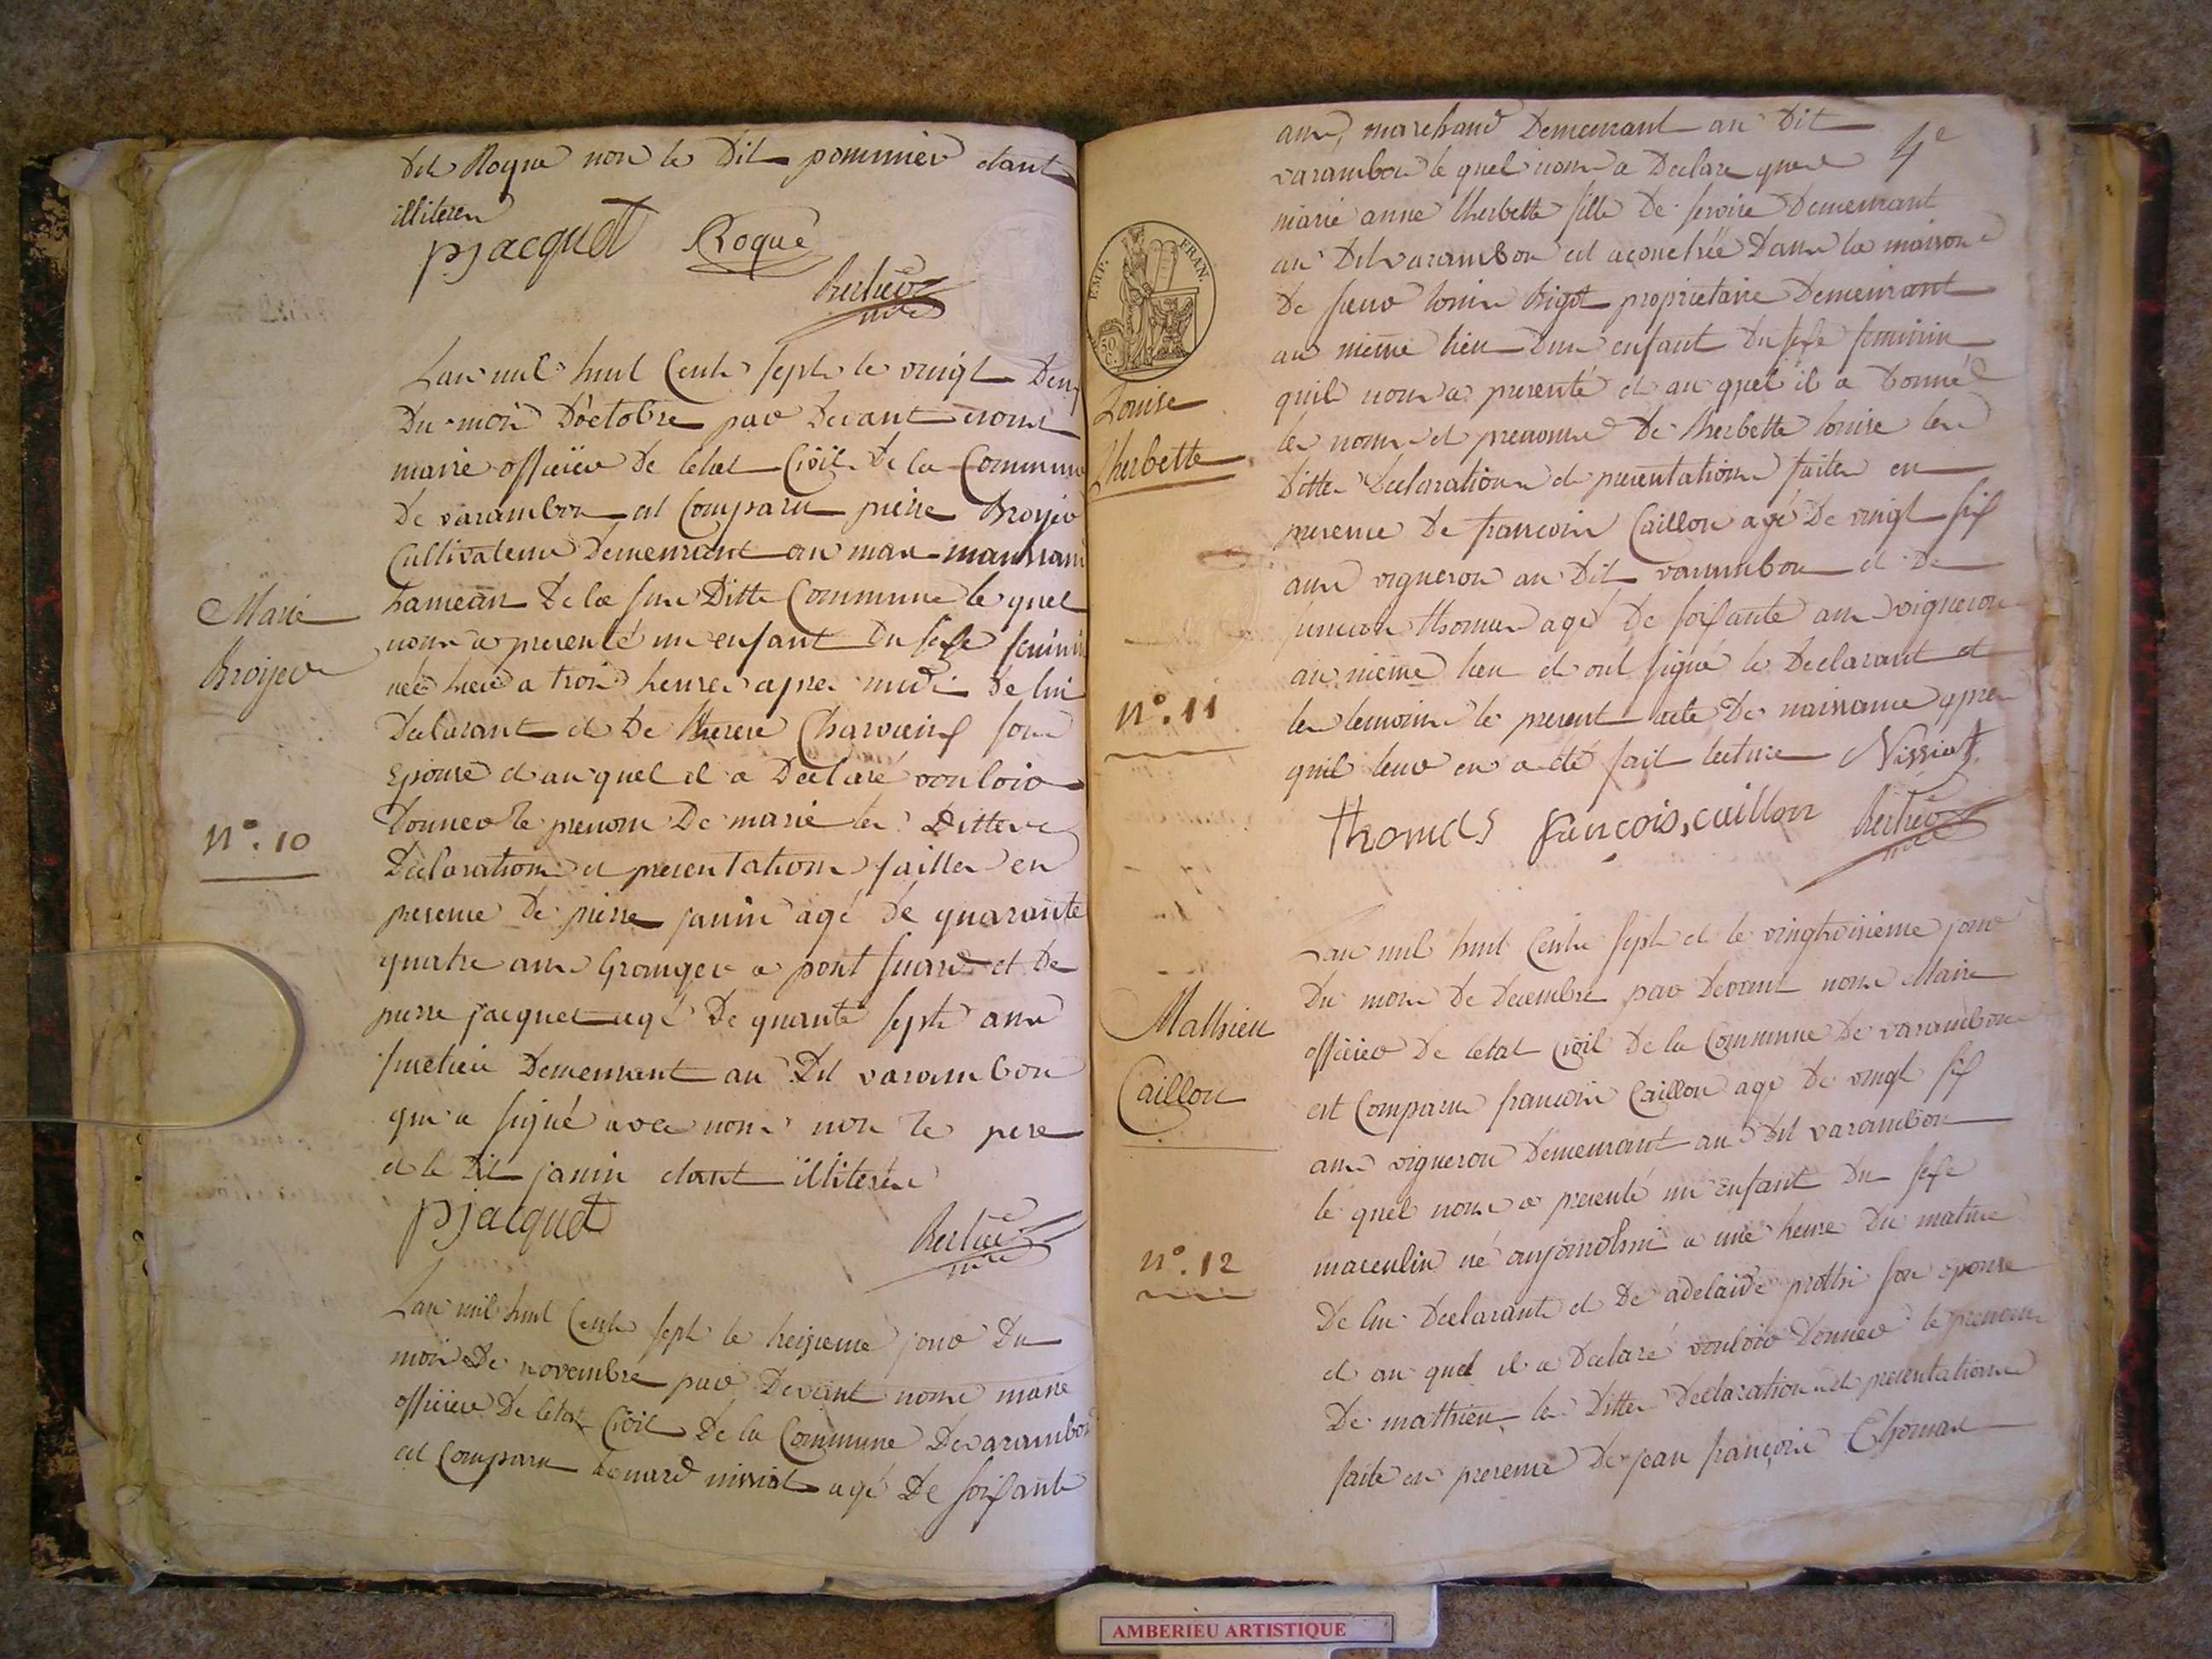 dit Roque non le dit pommier etant
illiteres
pjacquet Roque
Berlier
mre
Lan mil huit Cents sept le vingt deux
du mois d'octobre par devant nous
maire officier de letat Civil de la Commune
de varambon est Comparu pierre Broyer
Cultivateur demeurant au mas
hameau de la sus ditte Commune le quel
nous a presenté un enfant du sexe feminin
née hier a trois heures apres midi de lui
declarant et de therese son
Epouse et au quel il a declaré vouloir
donner le prenom de marie les dittes
declaration et presentation faittes en
presence de pierre janin agé de quarante
quatre ans Granger a pont et de
pierre jacquet agé de quarante sept ans
demeurant au dit varambon
qui a signé avec nous non le pere
et le dit janin etant illiteres
pjacquet
Berlier
mre
Marie
Broyer
N°. 10
Lan mil huit Cents sept le treizieme jour du
mois de novembre par devant nous maire
officier de letat Civil de la Commune de varambon
est Comparu leonard nissiat agé de soixante
4e
ans, marchand demeurant au dit
varambon le quel nous a declare que
marie anne therbette fille de demeurant
au dit varambon est acouchée dans la maison
de sieur louis Bigot proprietaire demeurant
au même lieu dun enfant du sexe feminin
quil nous a presenté et au quel il a donné
les noms et prenoms de therbette louise les
dittes declaration et presentation faites en
presence de francois Caillon agé de vingt six
ans vigneron au dit varambon et de
thomas agé de soixante ans vigneron
au même lieu et ont signé le declarant et
les temoins le present acte de naissance apres
quil leur en a été fait lecture Nissiat
thomas francois, caillon Berlier
mre
EMP. FRAN.
50 C.
Louise
therbette
N°. 11
Lan mil huit Cents sept et le vingtroisieme jour
du mois de decembre par devant nous Maire
officier de letat Civil de la Commune de varambon
est Comparu francois Caillon agé de vingt six
ans vigneron demeurant au dit varambon
le quel nous a presenté un enfant du sexe
masculin né aujourdhui a une heure du matin
de lui declarant et de adelaide son epouse
et au quel il a declaré vouloir donner le prenom
de mathieu les dittes declaration et presentation
faite en presence de jean françois Thomas
Mathieu
Caillon
N°. 12
AMBERIEU ARTISTIQUE